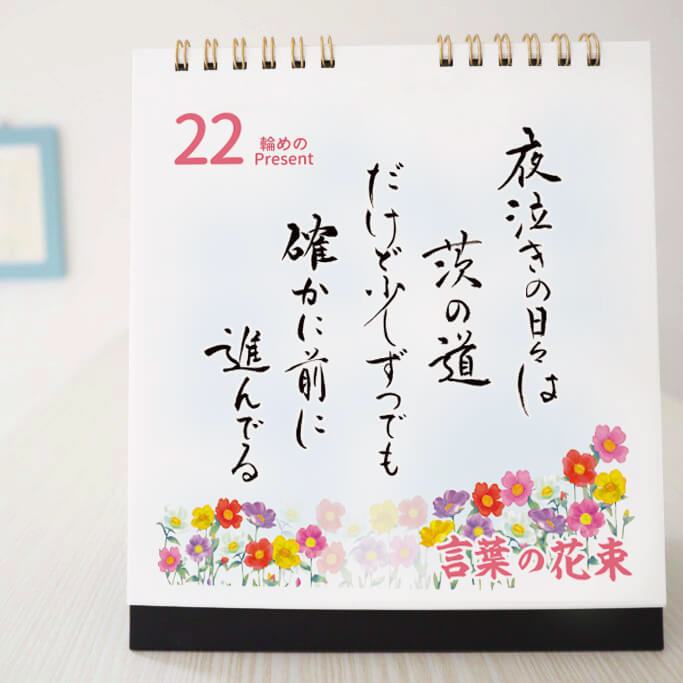 22
輪めの
Present
夜泣きの日々は
茨の道
だけど少しずつでも
確かに前に
進んでる
言葉の花束